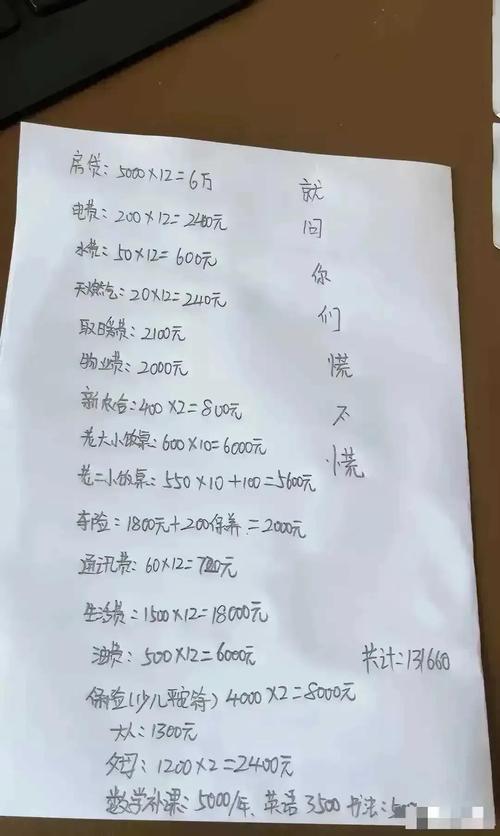 房贷：5000×12=6万
电费：200×12=2400元
水费：50×12=600元
天燃气：20×12=240元
取暖费：2100元
物业费：2000元
新农合：400×2=800元
老大小饭桌：600×10=6000元
老二小饭桌：550×10+100=5600元
车险：1800元+200保养=2000元
通讯费：60×12=720元
生活费：1500×12=18000元
油费：500×12=6000元
保险(少儿平安符) 4000×2=8000元
大人：1300元
父母：1200×2=2400元
数学补课：5000/年、英语3500 书法：5
就问你们慌不慌
共计：131660